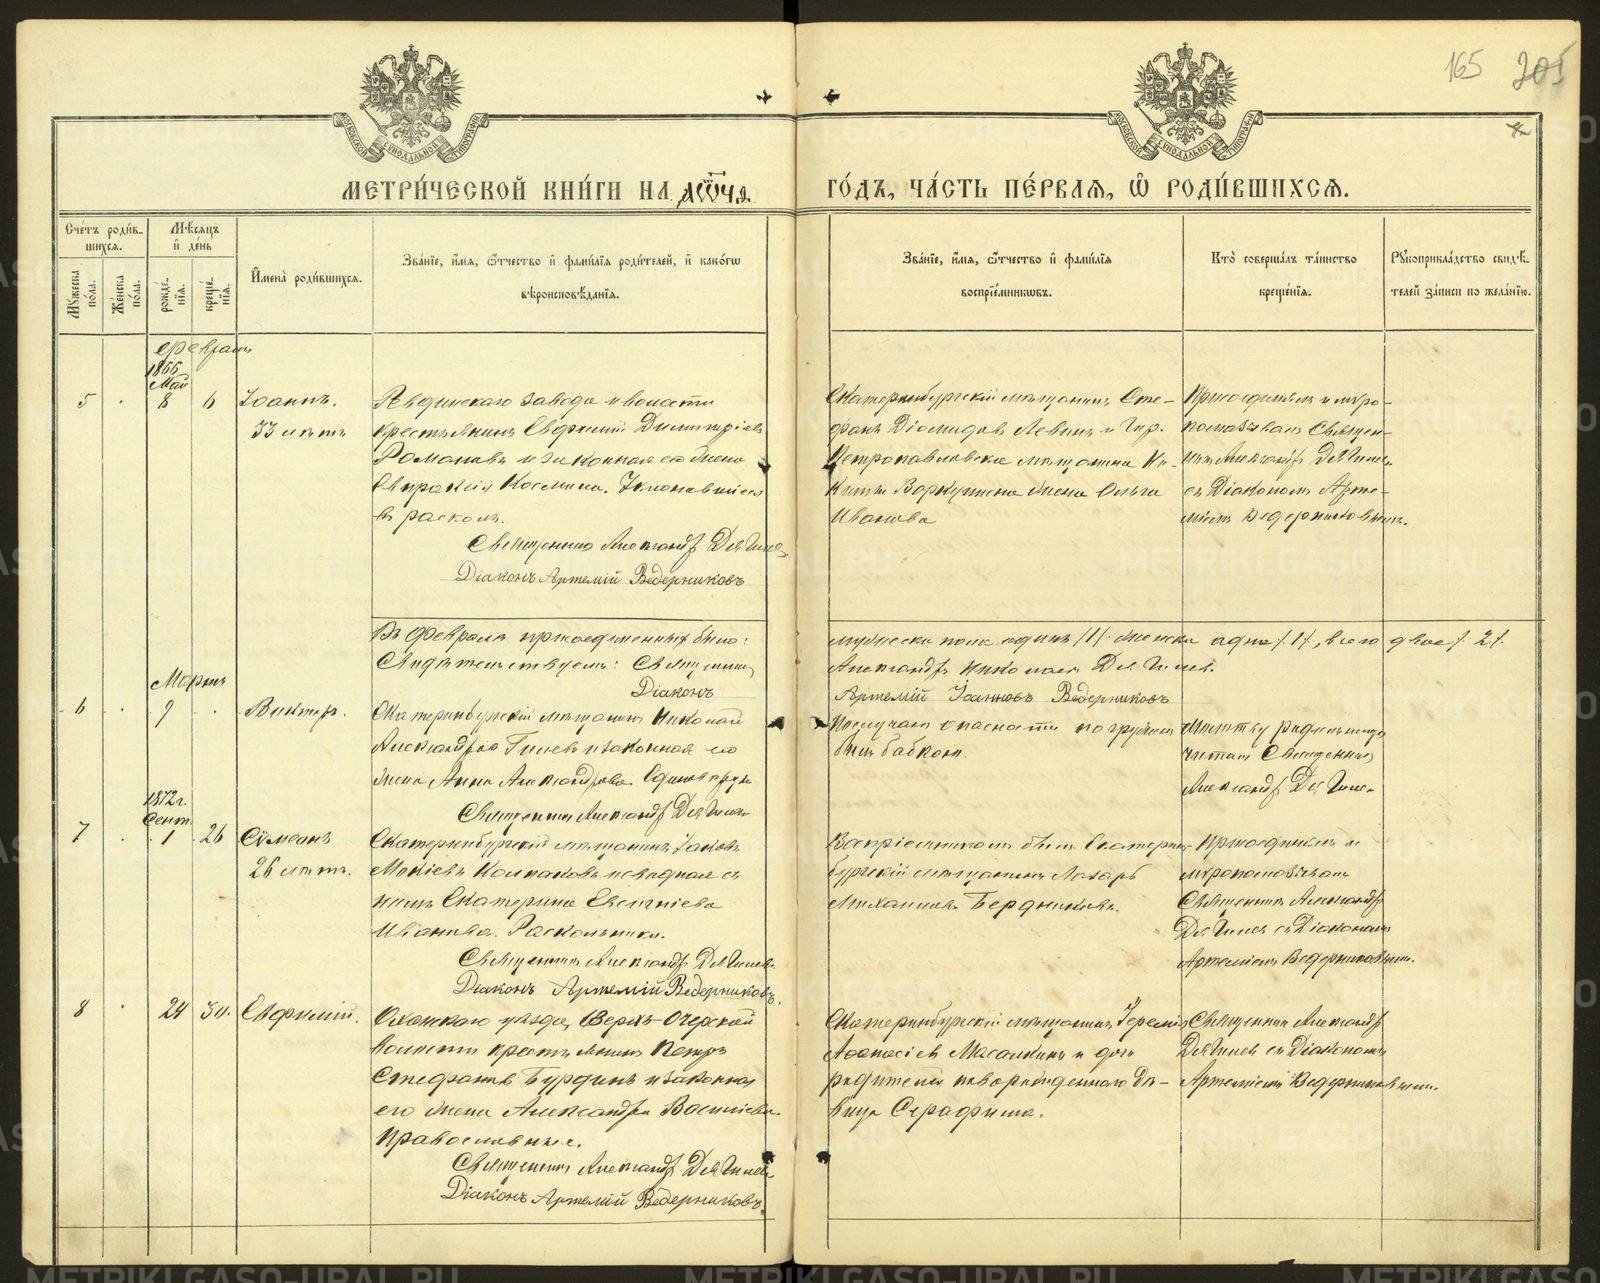 165 205
МОСКОВСКОЙ СѴНОДАЛЬНОЙ ТИПОГРАФІИ
МОСКОВСКОЙ СѴНОДАЛЬНОЙ ТИПОГРАФІИ
МЕТРИ́ЧЕСКОЙ КНИ́ГИ НА
ГО́ДЪ, ЧА́СТЬ ПЕ́РВАЯ, Ѡ РОДИ́ВШИХСЯ.
Сче́тъ роди́в-
шихся.
Му́жеска по́ла.
Же́нска по́ла.
Мѣ́сяцъ
и҆ де́нь
рожде́-
нїя.
креще́-
нїя.
И҆мена̀ роди́вшихся.
Зва́нїе, и҆́мя, ѻ҆́тчество и҆ фами́лїя роди́телей, и҆ како́гѡ
вѣроисповѣ́данїя.
Зва́нїе, и҆́мя, ѻ҆́тчество и҆ фами́лїя
воспрїе́мниковъ.
Кто̀ соверша́лъ та́инство
креще́нїя.
Рꙋкоприкла́дство свидѣ́-
телей за́писи по жела́нїю.
Февраль
1866
Май
5 8 6 Іоаннъ.
33 лѣтъ
Ревдинскаго завода и волости
крестьянинъ Евфимій Димитріевъ
Романовъ и законная его жена
Евпраксія Космина. Уклонившіеся
въ расколъ.
Священникъ Александръ Дягилев
Діаконъ Артемій Ведерниковъ
Екатеринбургскій мѣщанинъ Сте-
фанъ Діомидовъ Левинъ и Гор.
Петропавловска мѣщанина Ни-
киты жена Ольга
Иванова
Присоединялъ и мѵро-
помазывалъ Священ-
никъ Александръ Дягилев
съ Діакономъ Арте-
міемъ Ведерниковымъ.
Въ Февралѣ присоединенныхъ было:
мужеска пола одинъ /1/ женска одна /1/, всего двое /2/.
Свидѣтельствуемъ: Священникъ
Александръ Николаевъ Дягилевъ.
Діаконъ
Артемій Іоанновъ Ведерниковъ
Мартъ
6 9 Викторъ.
Екатеринбургскій мѣщанинъ Николай
Александровъ Гилевъ и законная его
жена Анна Александрова. Единовѣрцы
Священникъ Александръ Дягилевъ
По случаю опасности погруженъ
былъ бабкою.
Молитву родильницѣ
читалъ Священникъ
Александръ Дягилев
1872 г.
Сент.
7 1 26 Сѵмеонъ
26 лѣтъ.
Екатеринбургскій мѣщанинъ Іаковъ
Мокіевъ Колпаковъ и сводная съ
нимъ Екатерина Евгеніева
Иванова. Раскольники.
Священникъ Александръ Дягилевъ
Діаконъ Артемій Ведерниковъ.
Воспріемникомъ былъ Екатерин-
бургскій мѣщанинъ Лазарь
Михаиловъ Бердниковъ.
Присоединялъ и
мѵропомазывалъ
Священникъ Александръ
Дягилевъ съ Діакономъ
Артеміемъ Ведерниковымъ.
8 24 30. Евфимій.
Оханскаго уѣзда, Верхъ-Очерской
волости крестьянинъ Петръ
Стефановъ Бурдинъ и законная
его жена Александра Васильева.
Православные.
Священникъ Александръ Дягилевъ
Діаконъ Артемій Ведерниковъ.
Екатеринбургскій мѣщанинъ Іеремія
Аѳанасіевъ Масалкинъ и дочь
родителей новорожденнаго дѣ-
вица Серафима.
Священникъ Александръ
Дягилевъ съ Діакономъ
Артеміемъ Ведерниковымъ.
METRIKI.GASO-URAL.RU